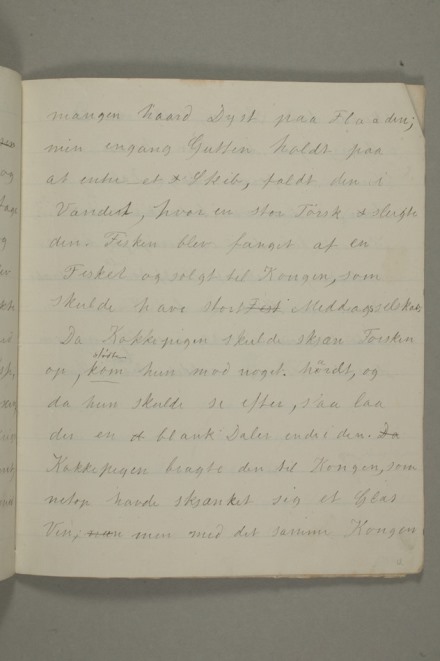 mangen haard Dyst paa Flaaden;
men engang Gutten holdt paa
at entre et Skib, faldt den i
Vandet, hvor en stor Torsk slugte
den. Fisken blev fanget af en
Fisker og solgt til Kongen, som
skulde have stort Fest Meddagsselskab.
Da Kokkepigen skulde skjæn Torsken
stødte
op, kom hun mod noget. hårdt, og
da hun skulde se efter, såa laa
der en blank Daler inde i den. Da
Kokkepigen bragte den til Kongen, som
netop havde skjænket sig et Glas
Vin, men med det samme Kongen